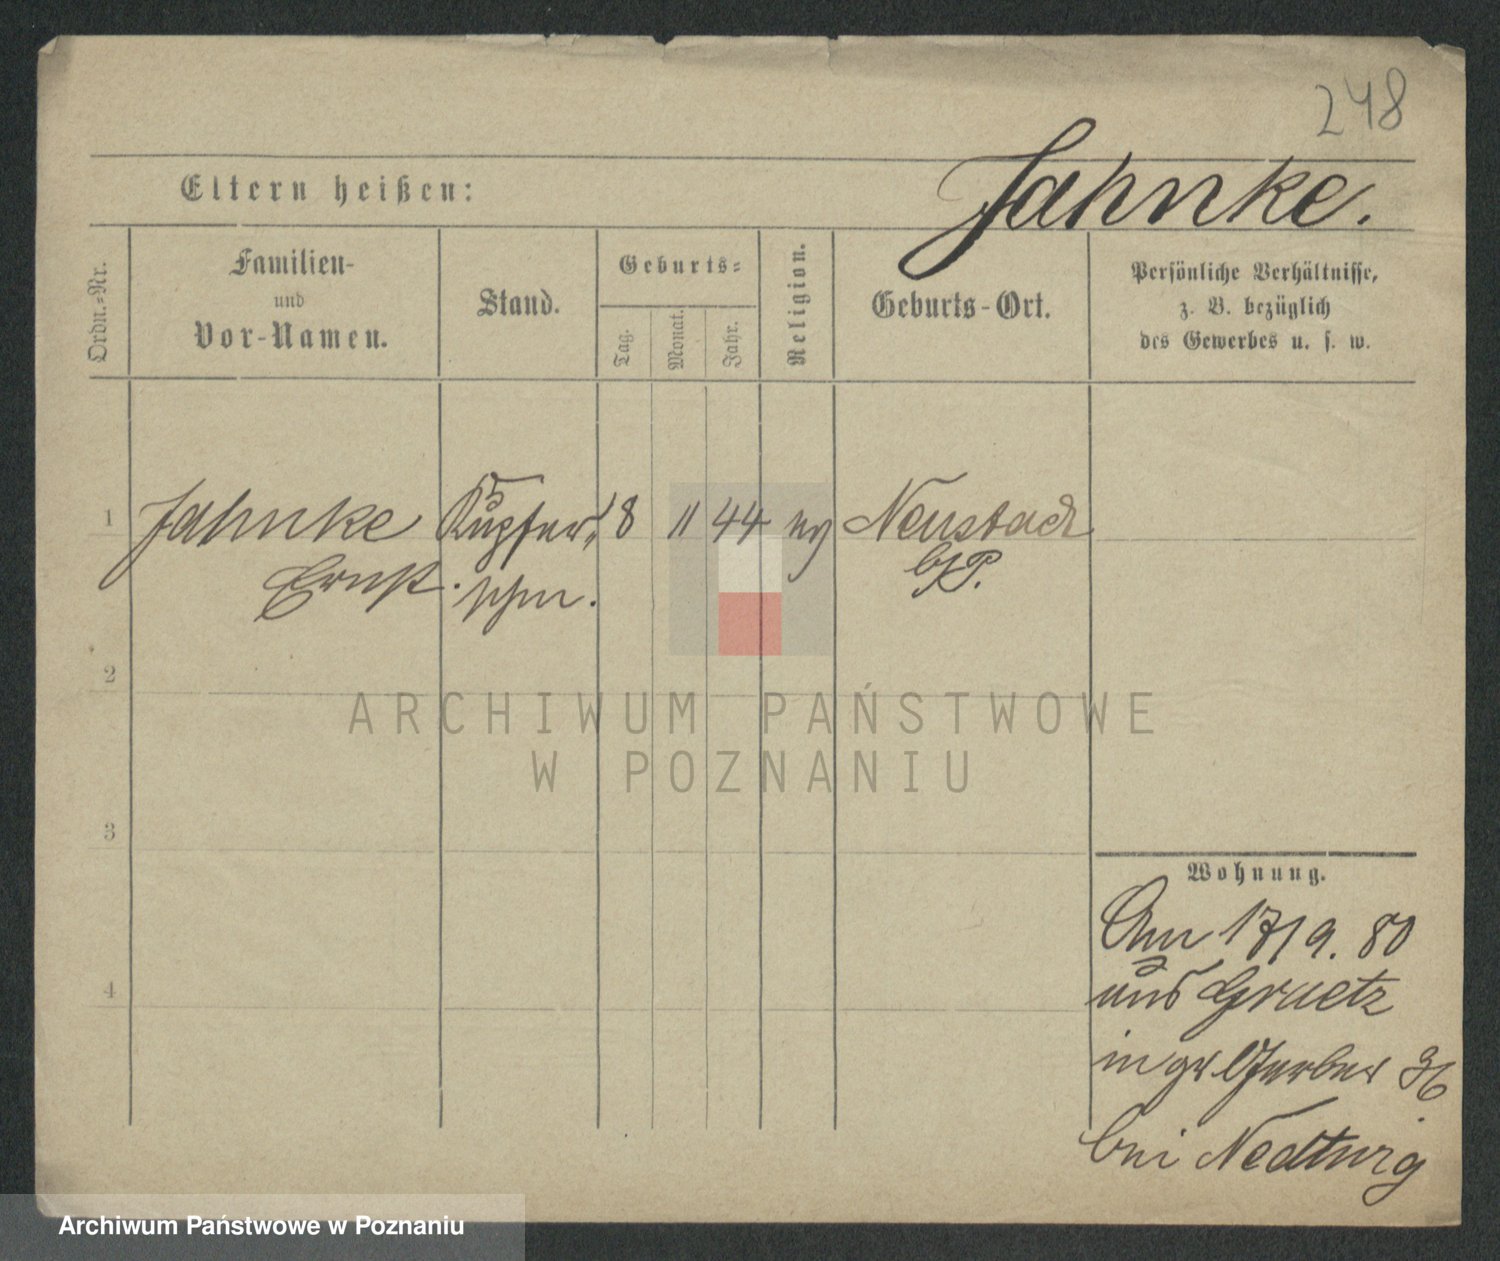 248
Jahnke.
Eltern heißen:
Ordn.=Nr.
Familien-
und
Vor-Namen.
Stand.
Geburts=
Tag.
Monat.
Jahr.
Religion.
Geburts-Ort.
Persönliche Verhältnisse,
z. B. bezüglich
des Gewerbes u. s. w.
1 Jahnke Kupfer 8 11 44 ev Neustadt
Ernst. schm. b/P.
2
3
4
Wohnung.
Am 17/9. 80
aus Graetz
in gr Gerber 36
bei Nedtwig
ARCHIWUM PAŃSTWOWE
W POZNANIU
Archiwum Państwowe w Poznaniu